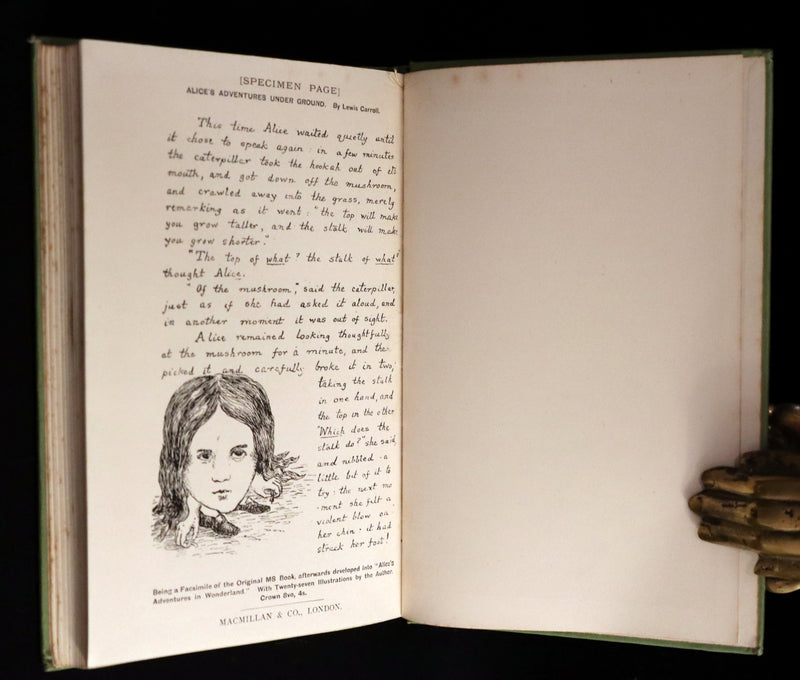 [SPECIMEN PAGE]
ALICE'S ADVENTURES UNDER GROUND. By Lewis Carroll.
This time Alice waited quietly until
it chose to speak again: in a few minutes
the caterpillar took the hookah out of its
mouth, and got down off the mushroom,
and crawled away into the grass, merely
remarking as it went: "the top will make
you grow taller, and the stalk will make
you grow shorter."
"The top of what? the stalk of what?"
thought Alice.
"Of the mushroom," said the caterpillar,
just as if she had asked it aloud, and
in another moment it was out of sight.
Alice remained looking thoughtfully
at the mushroom for a minute, and then
picked it and carefully broke it in two,
taking the stalk
in one hand, and
the top in the other
"Which does the
stalk do?" she said,
and nibbled a
little bit of it to
try: the next mo
-ment she felt a
violent blow on
her chin: it had
struck her foot!
Being a Facsimile of the Original MS Book, afterwards developed into "Alice's
Adventures in Wonderland." With Twenty-seven Illustrations by the Author.
Crown 8vo, 4s.
MACMILLAN & CO., LONDON.